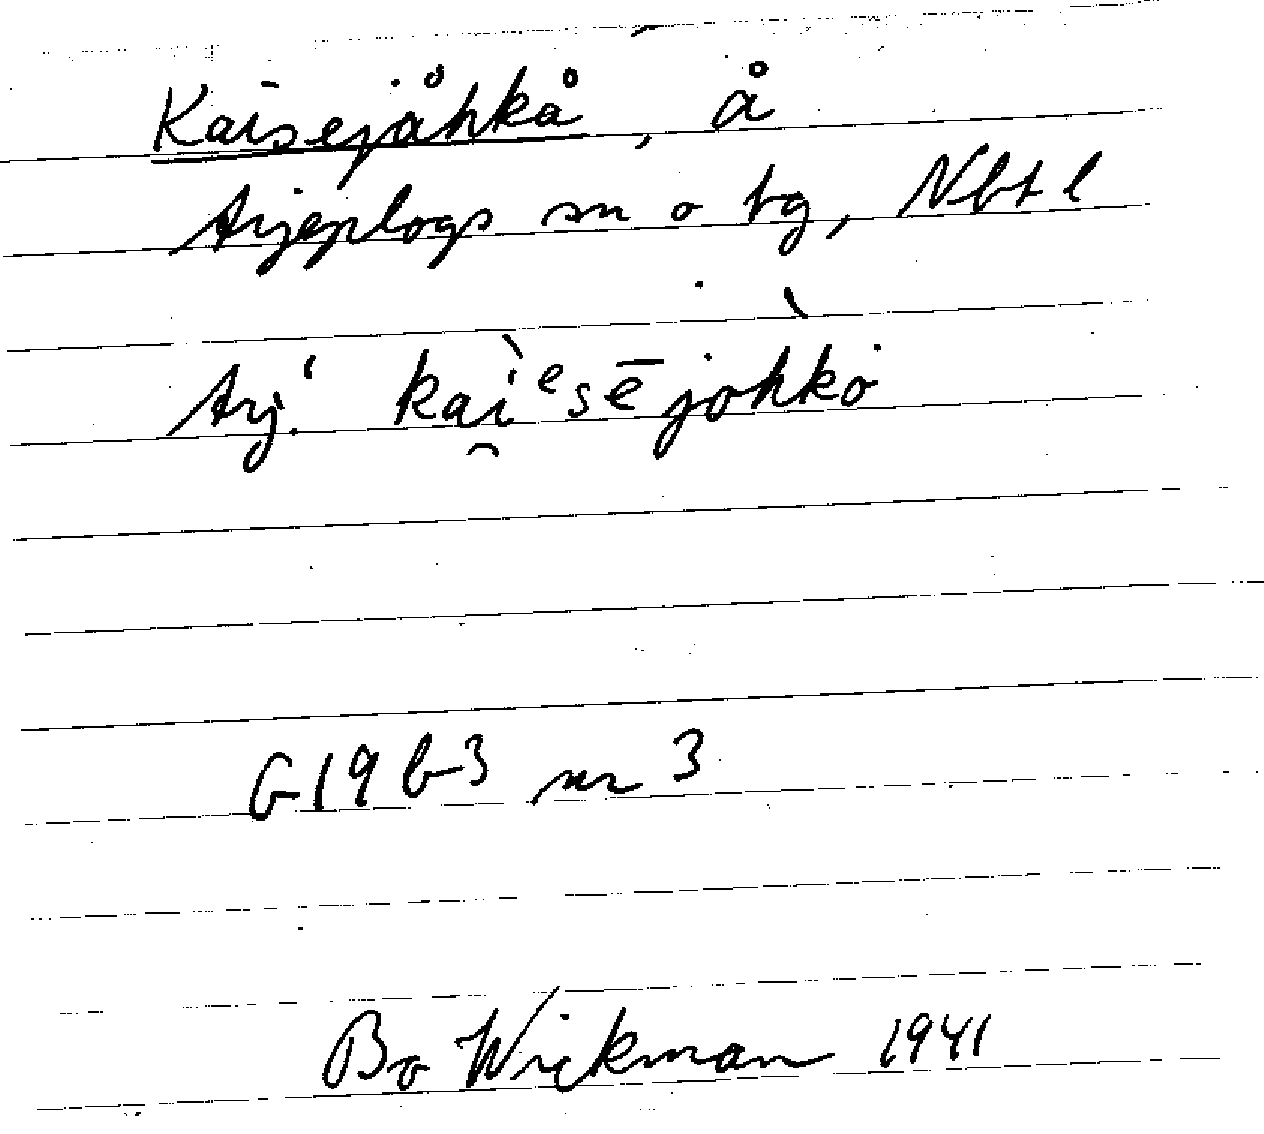 Kaisejåhkå, å
Arjeplogs sn o tg, Nbt l
Arj. ˈkai̯ˋᵉsējohkò
G19b3 nr 3
Bo Wickman 1941